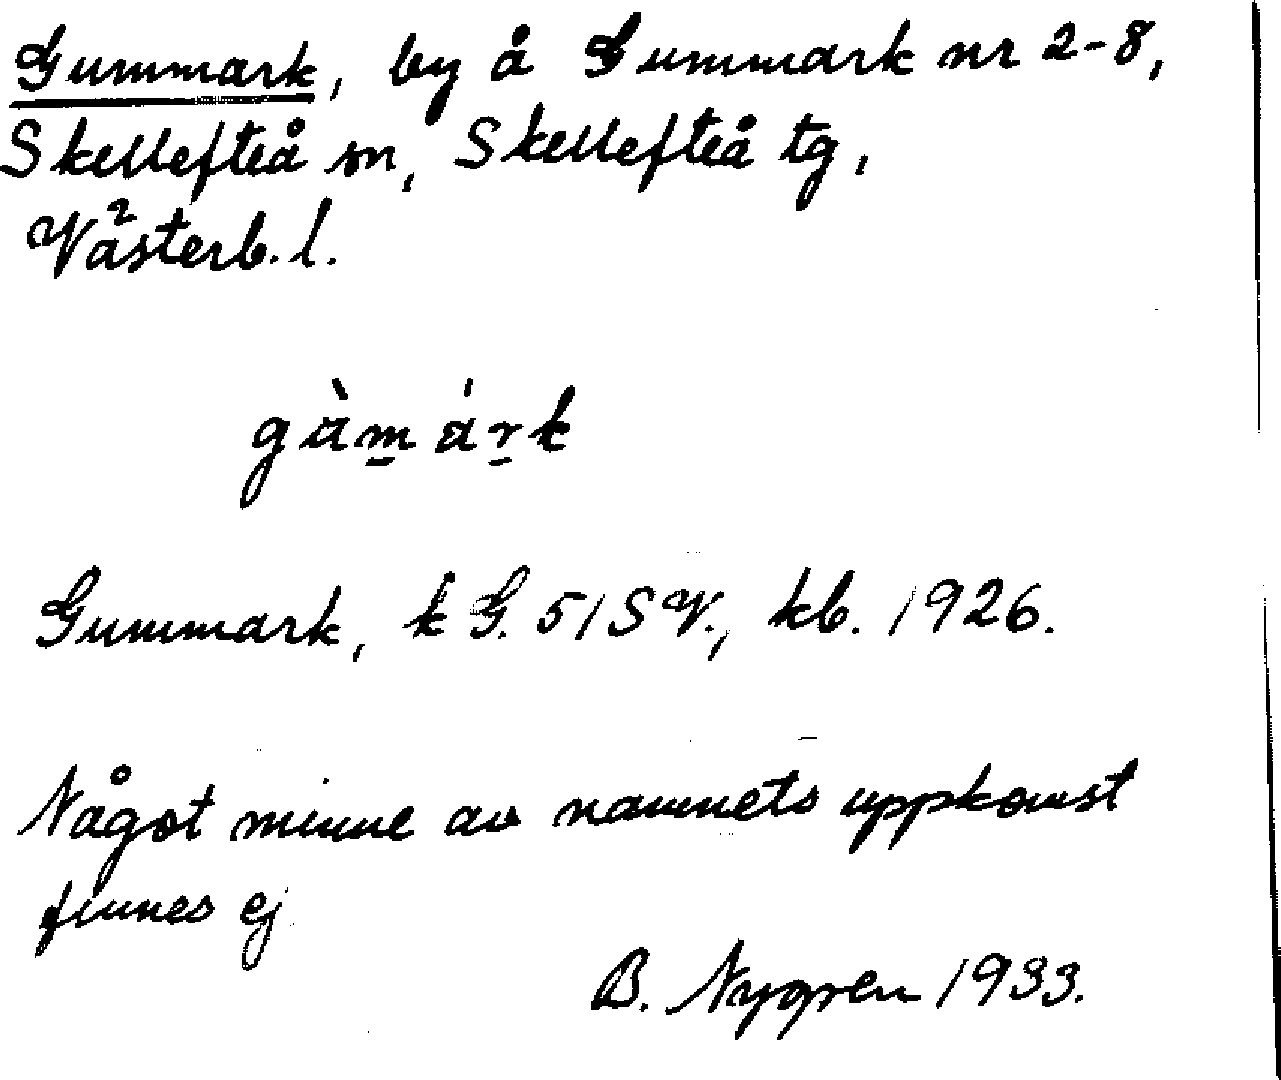 Gummark, by å Gummark nr 2-8,
Skellefteå sn, Skellefteå tg,
Västerb. l.
gàm̱áṟk
Gummark, k G. 51 S V., kb. 1926.
Något minne av namnets uppkomst
finnes ej
B. Nygren 1933.